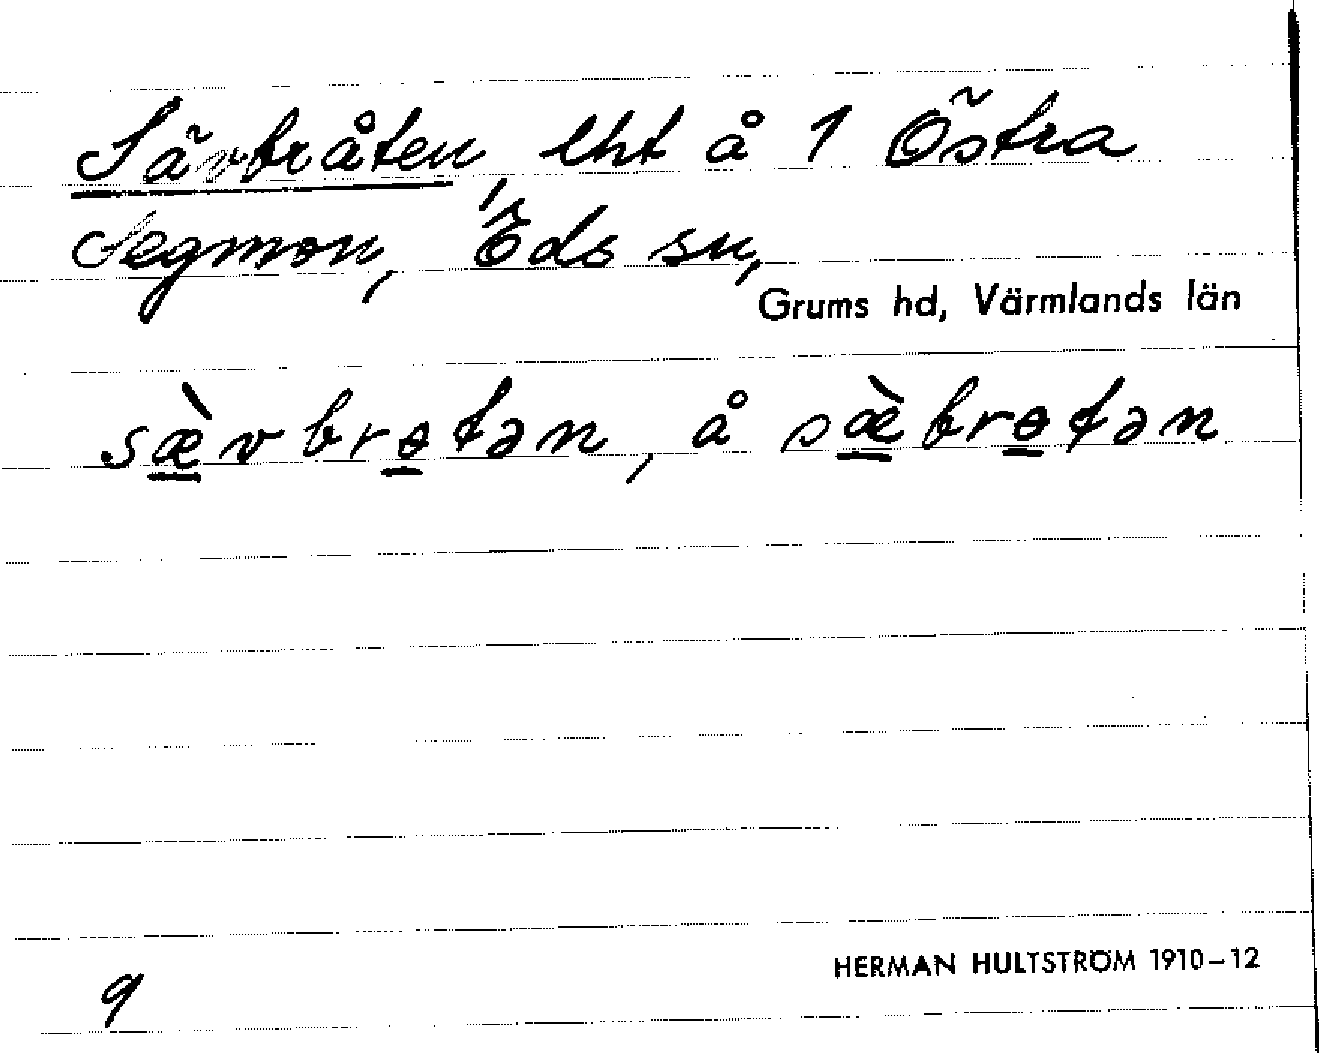 Sävbråten, lht å 1 Östra
Segmon, Eds sn,
Grums hd, Värmlands län
sæ̀vbrɵtən, å sæ̀brɵtən
HERMAN HULTSTRÖM 1910–12
9